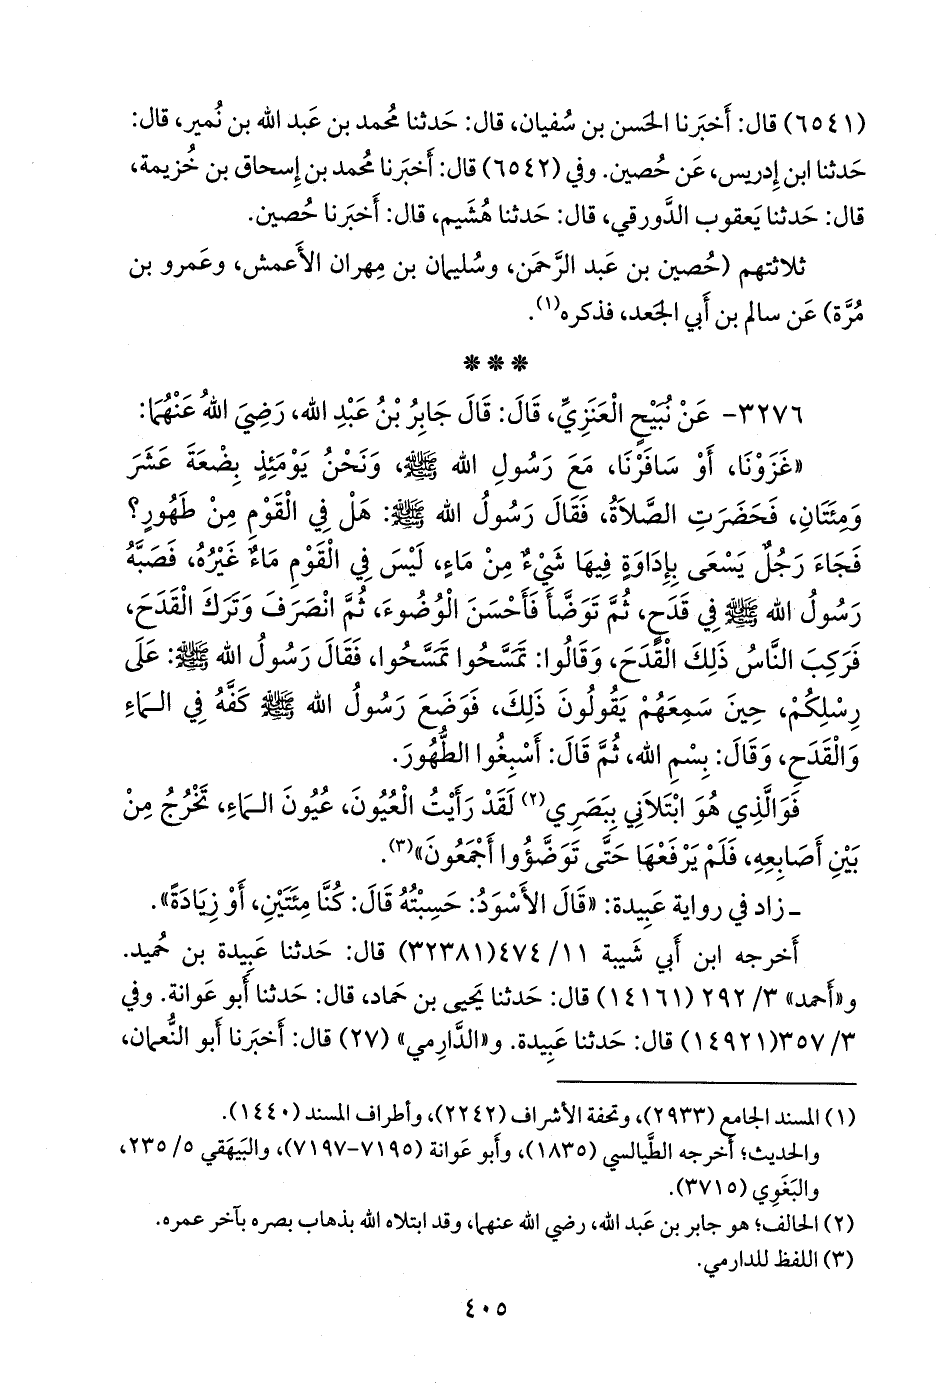 (٦٥٤١) قال: أَخبَرنا الحَسن بن سُفيان، قال: حَدثنا مُحمد بن عَبد الله بن نُمير، قال:
حَدثنا ابن إِدريس، عَن حُصين. وفي (٦٥٤٢) قال: أَخبَرنا مُحمد بن إِسحاق بن خُزيمة،
قال: حَدثنا يَعقوب الدَّورقي، قال: حَدثنا هُشَيم، قال: أَخبَرنا حُصين.
ثلاثتهم (حُصين بن عَبد الرَّحمَن، وسُليمان بن مِهران الأَعمش، وعَمرو بن
مُرَّة) عَن سالم بن أَبي الجَعد، فذكره(١).
***
٣٢٧٦- عَنْ نُبَيْحٍ الْعَنَزِيِّ، قَالَ: قَالَ جَابِرُ بْنُ عَبْدِ الله، رَضِيَ اللهُ عَنْهُمَا:
«غَزَوْنَا، أَوْ سَافَرْنَا، مَعَ رَسُولِ الله ﷺ، وَنَحْنُ يَوْمَئِذٍ بِضْعَةَ عَشَرَ
وَمِئَتَانِ، فَحَضَرَتِ الصَّلاَةُ، فَقَالَ رَسُولُ الله ﷺ: هَلْ فِي الْقَوْمِ مِنْ طَهُورٍ؟
فَجَاءَ رَجُلٌ يَسْعَى بِإِدَاوَةٍ فِيهَا شَيْءٌ مِنْ مَاءٍ، لَيْسَ فِي الْقَوْمِ مَاءٌ غَيْرُهُ، فَصَبَّهُ
رَسُولُ الله ﷺ فِي قَدَحٍ، ثُمَّ تَوَضَّأَ فَأَحْسَنَ الْوُضُوءَ، ثُمَّ انْصَرَفَ وَتَرَكَ الْقَدَحَ،
فَرَكِبَ النَّاسُ ذَلِكَ الْقَدَحَ، وَقَالُوا: تَمَسَّحُوا تَمَسَّحُوا، فَقَالَ رَسُولُ الله ﷺ: عَلَى
رِسْلِكُمْ، حِينَ سَمِعَهُمْ يَقُولُونَ ذَلِكَ، فَوَضَعَ رَسُولُ الله ﷺ كَفَّهُ فِي الـمَاءِ
وَالْقَدَحِ، وَقَالَ: بِسْمِ الله، ثُمَّ قَالَ: أَسْبِغُوا الطُّهُورَ.
فَوَالَّذِي هُوَ ابْتَلاَنِي بِبَصَرِي(٢) لَقَدْ رَأَيْتُ الْعُيُونَ، عُيُونَ الـمَاءِ، تَخْرُجُ مِنْ
بَيْنِ أَصَابِعِهِ، فَلَمْ يَرْفَعْهَا حَتَّى تَوَضَّؤُوا أَجْمَعُونَ»(٣).
ـ زاد في رواية عَبِيدة: «قَالَ الأَسْوَدُ: حَسِبْتُهُ قَالَ: كُنَّا مِئَتَيْنِ، أَوْ زِيَادَةً».
أَخرجه ابن أَبي شَيبة ١١/ ٤٧٤(٣٢٣٨١) قال: حَدثنا عَبِيدة بن حُميد.
و«أَحمد» ٣/ ٢٩٢ (١٤١٦١) قال: حَدثنا يَحيى بن حَماد، قال: حَدثنا أَبو عَوانة. وفي
٣/ ٣٥٧(١٤٩٢١) قال: حَدثنا عَبِيدة. و«الدَّارِمي» (٢٧) قال: أَخبَرنا أَبو النُّعمان،
(١) المسند الجامع (٢٩٣٣)، وتحفة الأشراف (٢٢٤٢)، وأطراف المسند (١٤٤٠).
والحديث؛ أَخرجه الطَّيالسي (١٨٣٥)، وأَبو عَوانة (٧١٩٥-٧١٩٧)، والبَيهَقي ٥/ ٢٣٥،
والبَغَوِي (٣٧١٥).
(٢) الحالف؛ هو جابر بن عَبد الله، رضي الله عنهما، وقد ابتلاه الله بذهاب بصره بآخر عمره.
(٣) اللفظ للدارمي.
٤٠٥